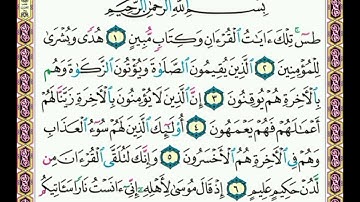 بِسْمِ ٱللَّهِ ٱلرَّحْمَٰنِ ٱلرَّحِيمِ
طسٓ ۚ تِلْكَ ءَايَٰتُ ٱلْقُرْءَانِ وَكِتَابٍ مُّبِينٍ ١ هُدًى وَبُشْرَىٰ
لِلْمُؤْمِنِينَ ٢ ٱلَّذِينَ يُقِيمُونَ ٱلصَّلَوٰةَ وَيُؤْتُونَ ٱلزَّكَوٰةَ وَهُم
بِٱلْءَاخِرَةِ هُمْ يُوقِنُونَ ٣ إِنَّ ٱلَّذِينَ لَا يُؤْمِنُونَ بِٱلْءَاخِرَةِ زَيَّنَّا لَهُمْ
أَعْمَٰلَهُمْ فَهُمْ يَعْمَهُونَ ٤ أُو۟لَٰٓئِكَ ٱلَّذِينَ لَهُمْ سُوٓءُ ٱلْعَذَابِ
وَهُمْ فِى ٱلْءَاخِرَةِ هُمُ ٱلْأَخْسَرُونَ ٥ وَإِنَّكَ لَتُلَقَّى ٱلْقُرْءَانَ مِن
لَّدُنْ حَكِيمٍ عَلِيمٍ ٦ إِذْ قَالَ مُوسَىٰ لِأَهْلِهِۦٓ إِنِّىٓ ءَانَسْتُ نَارًا سَـَٔاتِيكُم